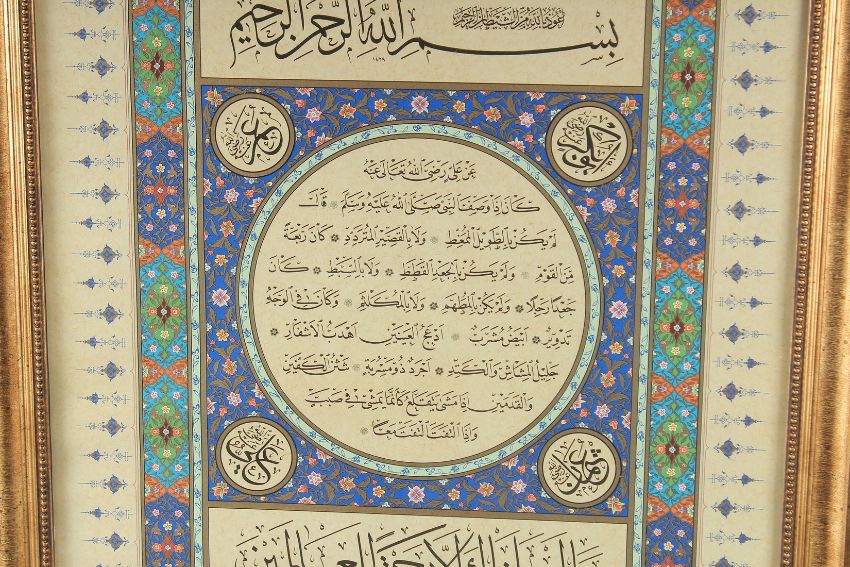 أعوذ بالله من الشيطان الرجيم
بسم الله الرحمن الرحيم
عن علي رضي الله تعالى عنه
كان إذا وصف النبي صلى الله عليه وسلم قال
لم يكن بالطويل الممغط ولا بالقصير المتردد كان ربعة
من القوم ولم يكن بالجعد القطط ولا بالسبط كان
جعدا رجلا ولم يكن بالمطهم ولا بالمكلثم وكان في الوجه
تدوير أبيض مشرب أدعج العينين أهدب الأشفار
جليل المشاش والكتد أجرد ذو مسربة شثن الكفين
والقدمين إذا مشى يتقلع كأنما يمشي في صبب
وإذا التفت التفت معا